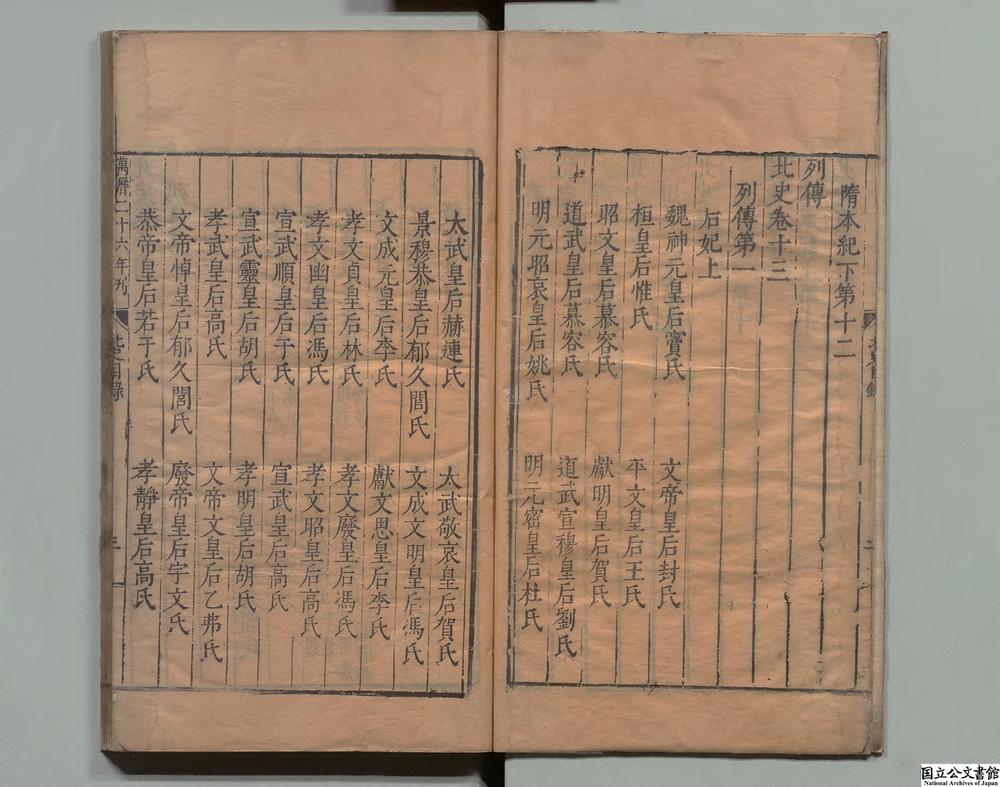 隋本紀下第十二
列傳
北史卷十三
列傳第一
后妃上
魏神元皇后竇氏 文帝皇后封氏
桓皇后惟氏 平文皇后王氏
昭文皇后慕容氏 獻明皇后賀氏
道武皇后慕容氏 道武宣穆皇后劉氏
明元昭哀皇后姚氏 明元密皇后杜氏
太武皇后赫連氏 太武敬哀皇后賀氏
景穆恭皇后郁久閭氏 文成文明皇后馮氏
文成元皇后李氏 獻文思皇后李氏
孝文貞皇后林氏 孝文廢皇后馮氏
孝文幽皇后馮氏 孝文昭皇后高氏
宣武順皇后于氏 宣武皇后高氏
宣武靈皇后胡氏 孝明皇后胡氏
孝武皇后高氏 文帝文皇后乙弗氏
文帝悼皇后郁久閭氏 廢帝皇后宇文氏
恭帝皇后若干氏 孝靜皇后高氏
萬曆二十六年刊
北史目錄
三
国立公文書館
National Archives of Japan